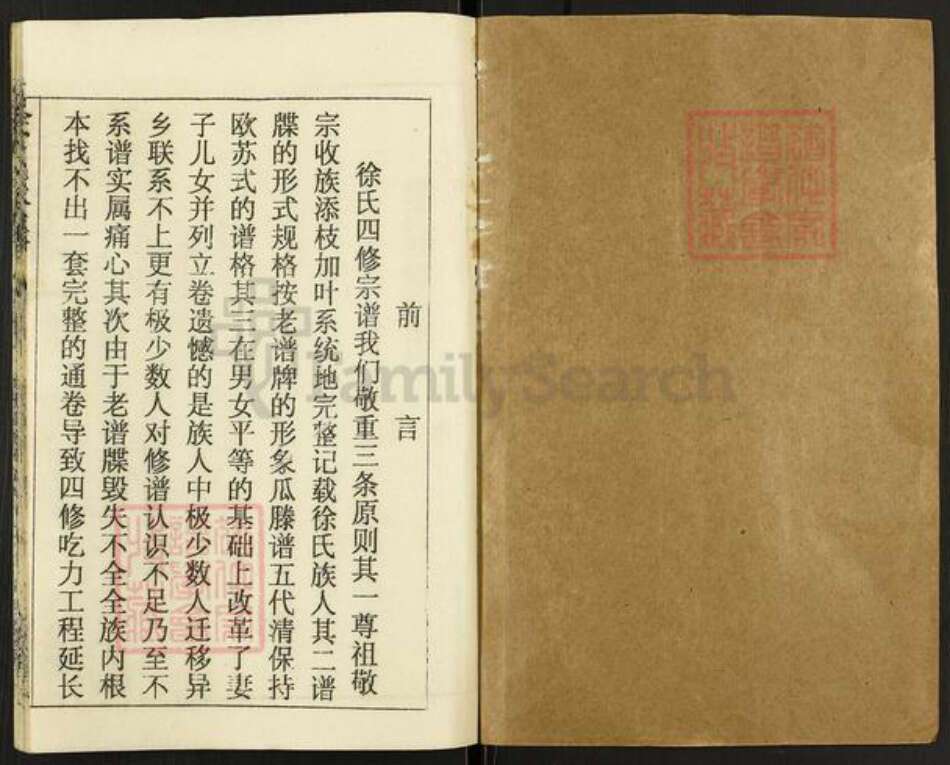 前言
徐氏四修宗谱我们敬重三条原则其一尊祖敬
宗收族添枝加叶系统地完整记载徐氏族人其二谱
牒的形式规格按老谱牌的形象瓜滕谱五代清保持
欧苏式的谱格其三在男女平等的基础上改革了妻
子儿女并列立卷遗憾的是族人中极少数人迁移异
乡联系不上更有极少数人对修谱认识不足乃至不
系谱实属痛心其次由于老谱牒毁失不全全族内根
本找不出一套完整的通卷导致四修吃力工程延长
FamilySearch